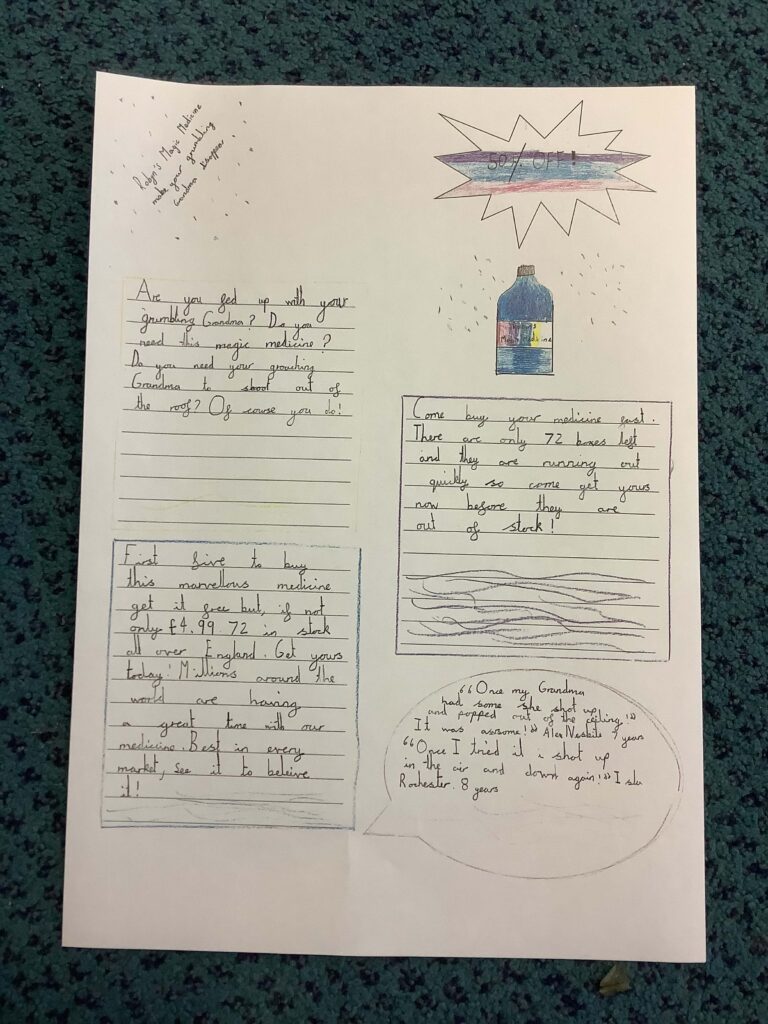 Robyn's Magic Medicine
make your grumbling
Grandma disappear
50% OFF!
Magic Medicine
Are you fed up with your
grumbling Grandma? Do you
need this magic medicine?
Do you need your grouching
Grandma to shoot out of
the roof? Of course you do!
Come buy your medicine fast.
There are only 72 boxes left
and they are running out
quickly so come get yours
now before they are
out of stock!
First five to buy
this marvellous medicine
get it free but, if not
only £4.99. 72 in stock
all over England. Get yours
today! Millions around the
world are having
a great time with our
medicine. Best in every
market, see it to beleive
it!
"Once my Grandma
had some she shot up
and popped out of the ceiling!"
It was awsome!" Alex Nesbite 9 years
"Once I tried it i shot up
in the air and down again!" Isla
Rochester. 8 years